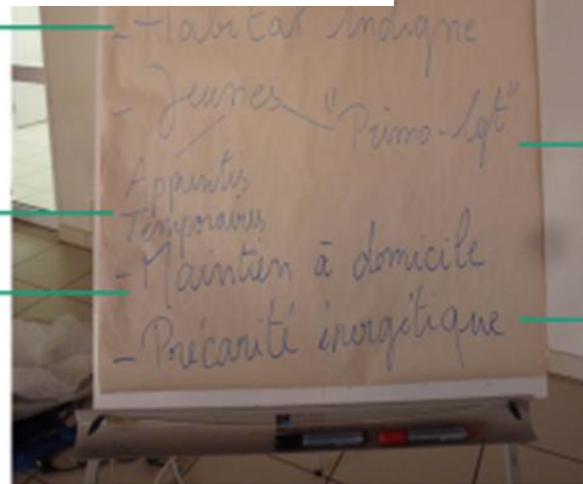 - Habitat indigne
- Jeunes
"Primo-lgt"
Apprentis
Temporaires
- Maintien à domicile
- Précarité énergétique